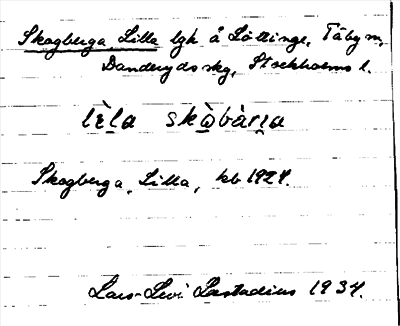 Skogberga, Lilla lgh å Löttinge, Täby sn,
Danderyds skg, Stockholms l.
lὲ̱la skò̱bàrı̱a
Skogberga, Lilla, kb 1924.
Lars-Levi Læstadius 1934.